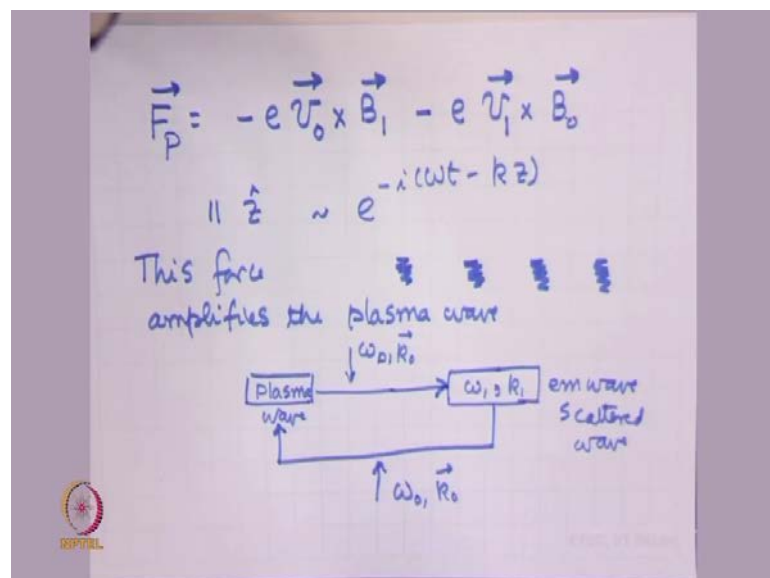 F⃗_P = - e v⃗_0 × B⃗_1 - e v⃗_1 × B⃗_0
|| ẑ ~ e^{-i(ωt - kz)}
This force
amplifies the plasma wave
ω_0, k⃗_0
Plasma
wave
ω_1, k_1
em wave
Scattered
wave
ω_0, k⃗_0
NPTEL